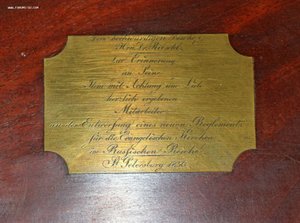 www.forum-sv.com
Hrn Dr.
Zur Erinnerung
an Seine
Ihm mit Achtung und Liebe
herzlich ergebenen
Mitarbeiter
an der Entwerfung eines neuen Reglements
für die Evangelischen Kirchen
im Russischen Reiche
St Petersburg